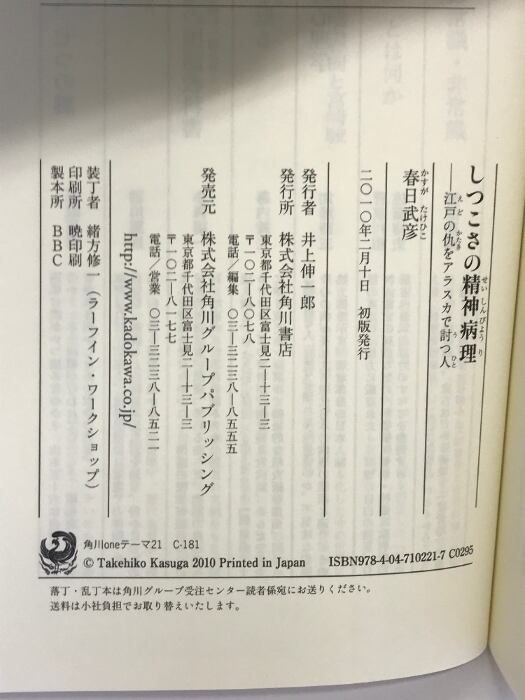 しつこさの精神病理
せいしんびょうり
――江戸の仇をアラスカで討つ人
えど かたき う ひと
春日武彦
かすが たけひこ
二〇一〇年二月十日 初版発行
発行者 井上伸一郎
発行所 株式会社角川書店
東京都千代田区富士見二―十三―三
〒一〇二―八〇七八
電話／編集 〇三―三二三八―八五五五
発売元 株式会社角川グループパブリッシング
東京都千代田区富士見二―十三―三
〒一〇二―八一七七
電話／営業 〇三―三二三八―八五二一
http://www.kadokawa.co.jp/
装丁者 緒方修一（ラーフイン・ワークショップ）
印刷所 暁印刷
製本所 BBC
角川oneテーマ21 C-181
© Takehiko Kasuga 2010 Printed in Japan ISBN978-4-04-710221-7 C0295
落丁・乱丁本は角川グループ受注センター読者係宛にお送りください。
送料は小社負担でお取り替えいたします。